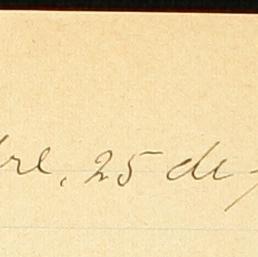 bre, 25 de